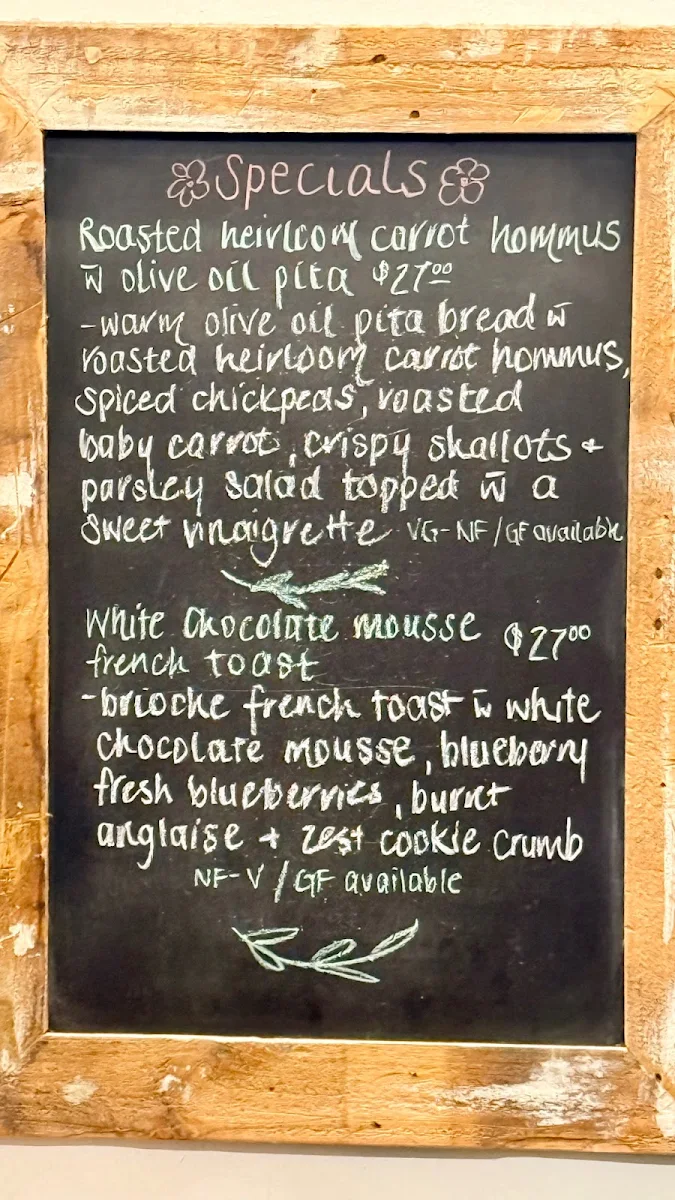 Specials
Roasted heirloom carrot hommus
w̄ olive oil pita $27.00
-warm olive oil pita bread w̄
roasted heirloom carrot hommus,
spiced chickpeas, roasted
baby carrot, crispy shallots +
parsley salad topped w̄ a
sweet vinaigrette VG-NF/GF available
White Chocolate mousse $27.00
french toast
-brioche french toast w̄ white
chocolate mousse, blueberry
fresh blueberries, burnt
anglaise + zest cookie crumb
NF-V/GF available